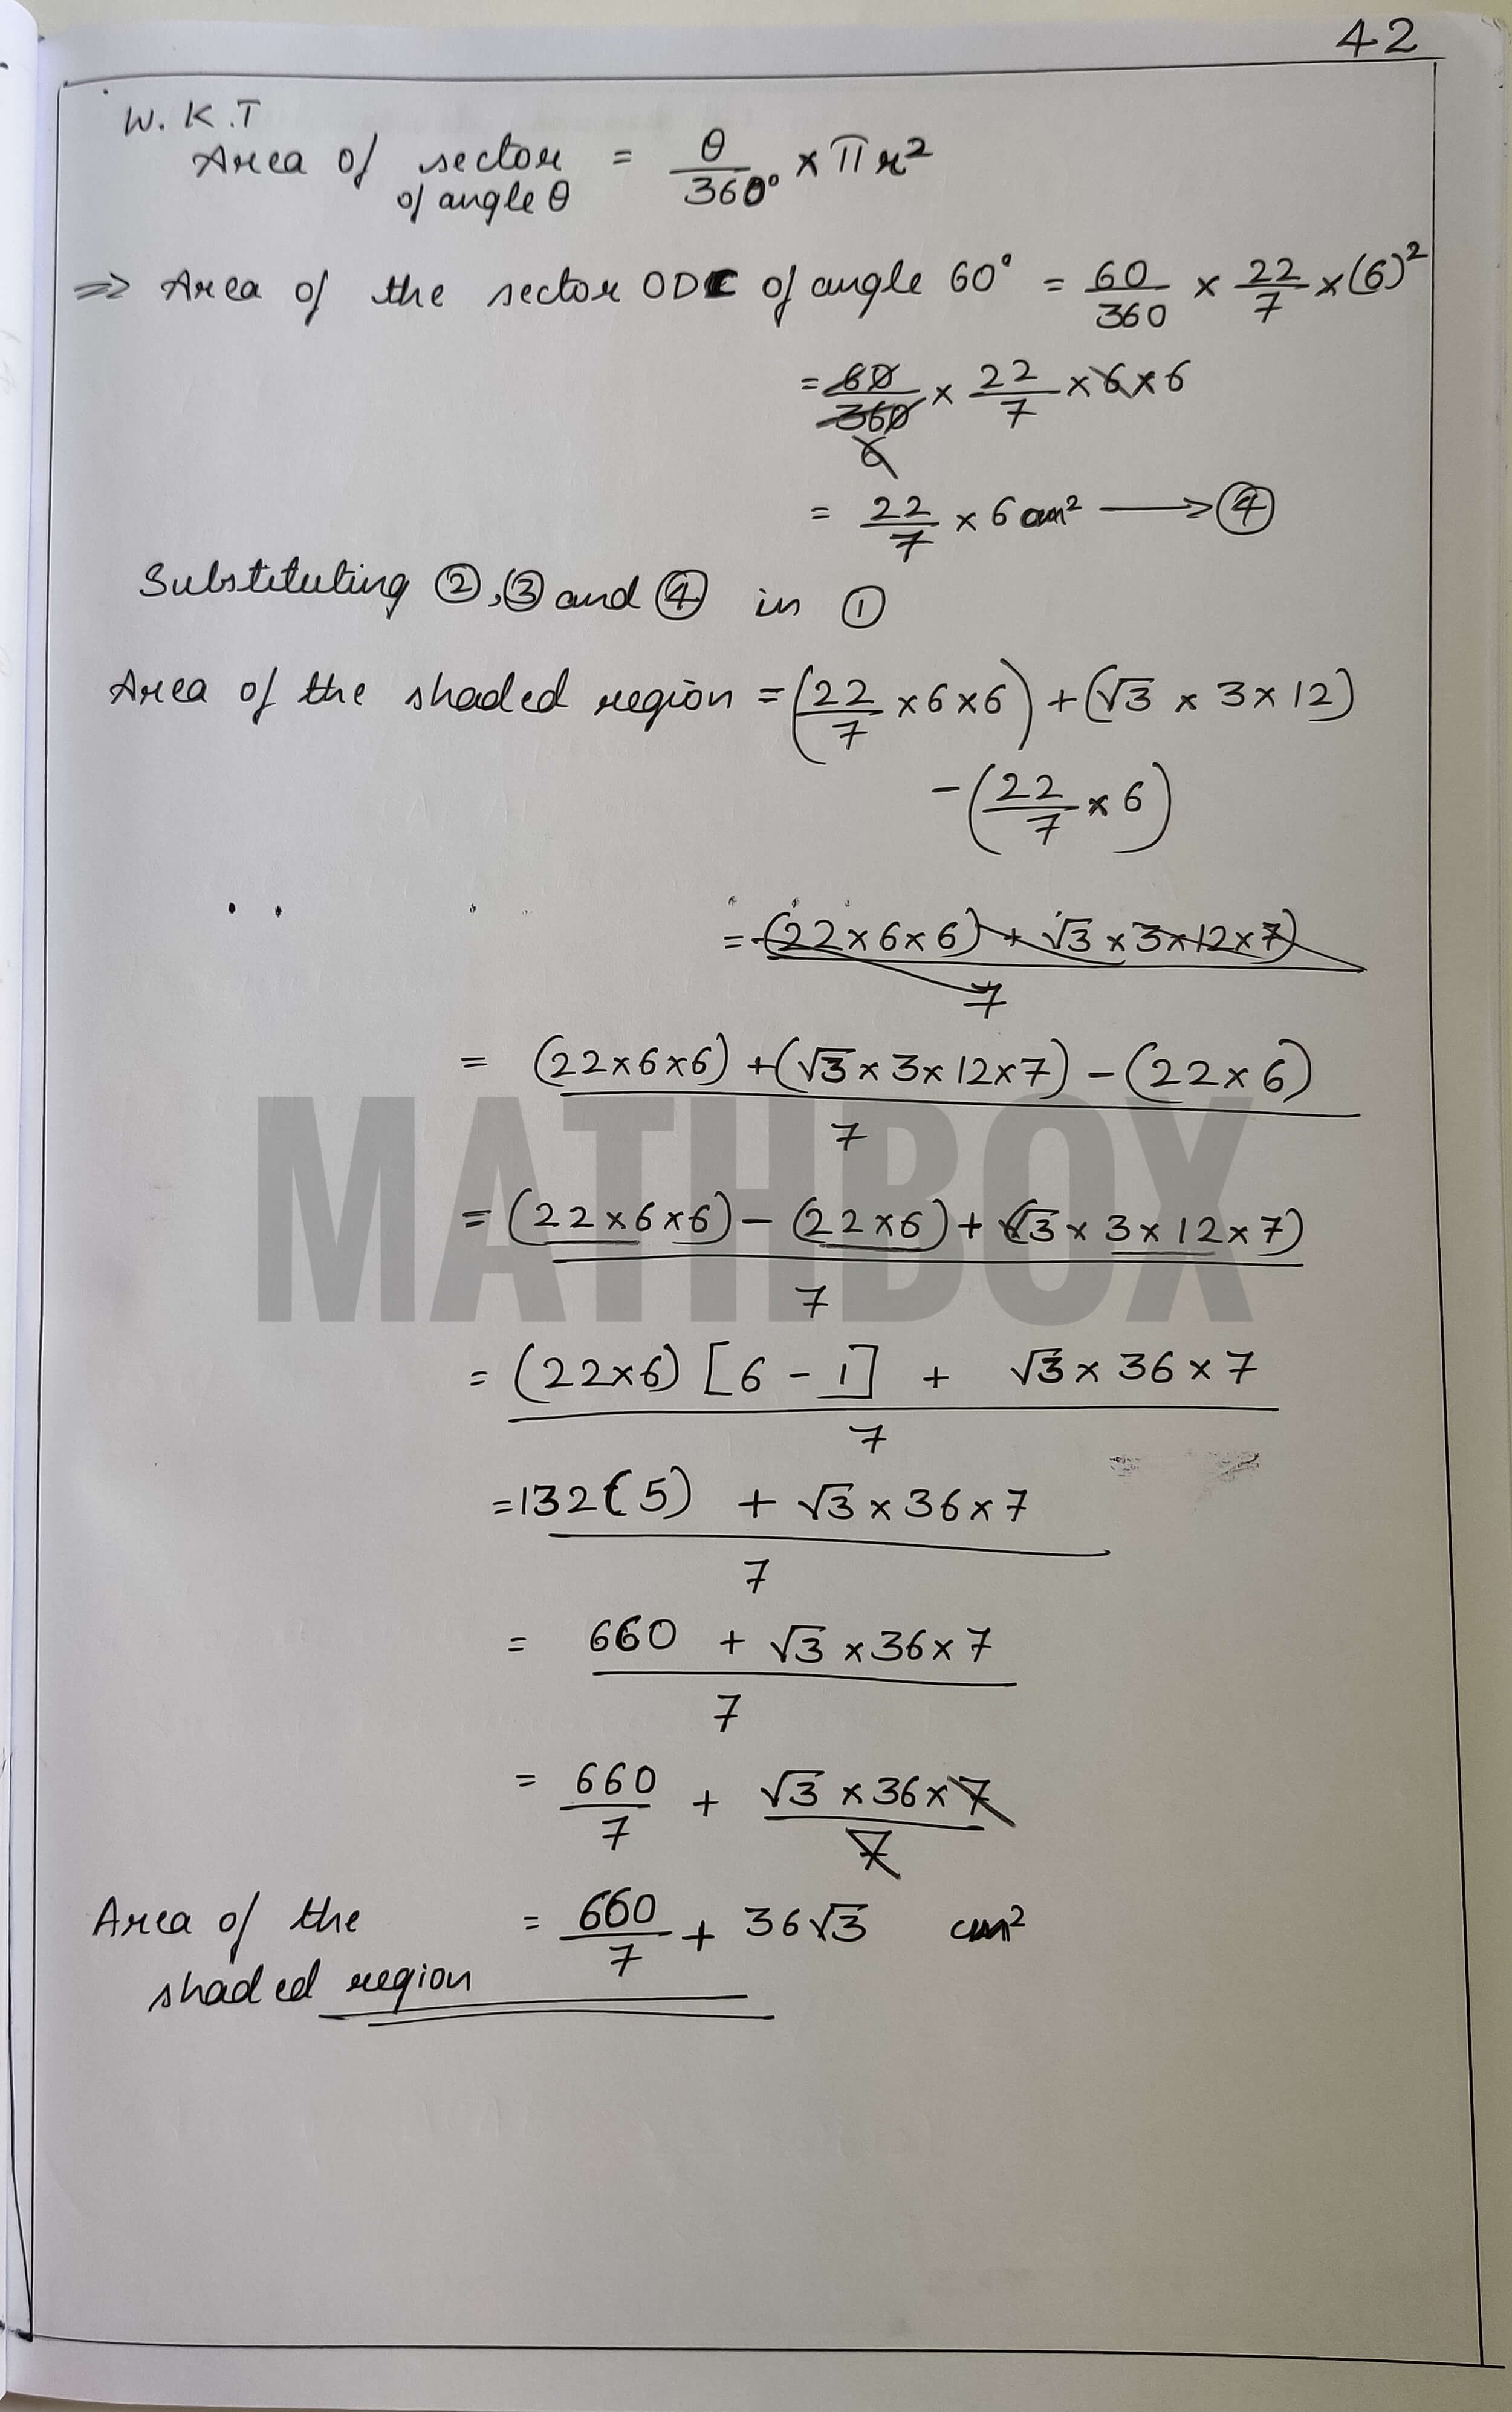 42
W.K.T
Area of sector of angle θ = θ/360° × πr²
⇒ Area of the sector ODC of angle 60° = 60/360 × 22/7 × (6)²
= 60/360 × 22/7 × 6 × 6
6
= 22/7 × 6 cm² → ④
Substituting ②, ③ and ④ in ①
Area of the shaded region = (22/7 × 6 × 6) + (√3 × 3 × 12)
- (22/7 × 6)
= (22 × 6 × 6) + √3 × 3 × 12 × 7) / 7
= (22 × 6 × 6) + (√3 × 3 × 12 × 7) - (22 × 6) / 7
MATHBOX
= (22 × 6 × 6) - (22 × 6) + (√3 × 3 × 12 × 7) / 7
= (22 × 6) [6 - 1] + √3 × 36 × 7 / 7
= 132(5) + √3 × 36 × 7 / 7
= 660 + √3 × 36 × 7 / 7
= 660/7 + √3 × 36 × 7 / 7
Area of the shaded region = 660/7 + 36√3 cm²